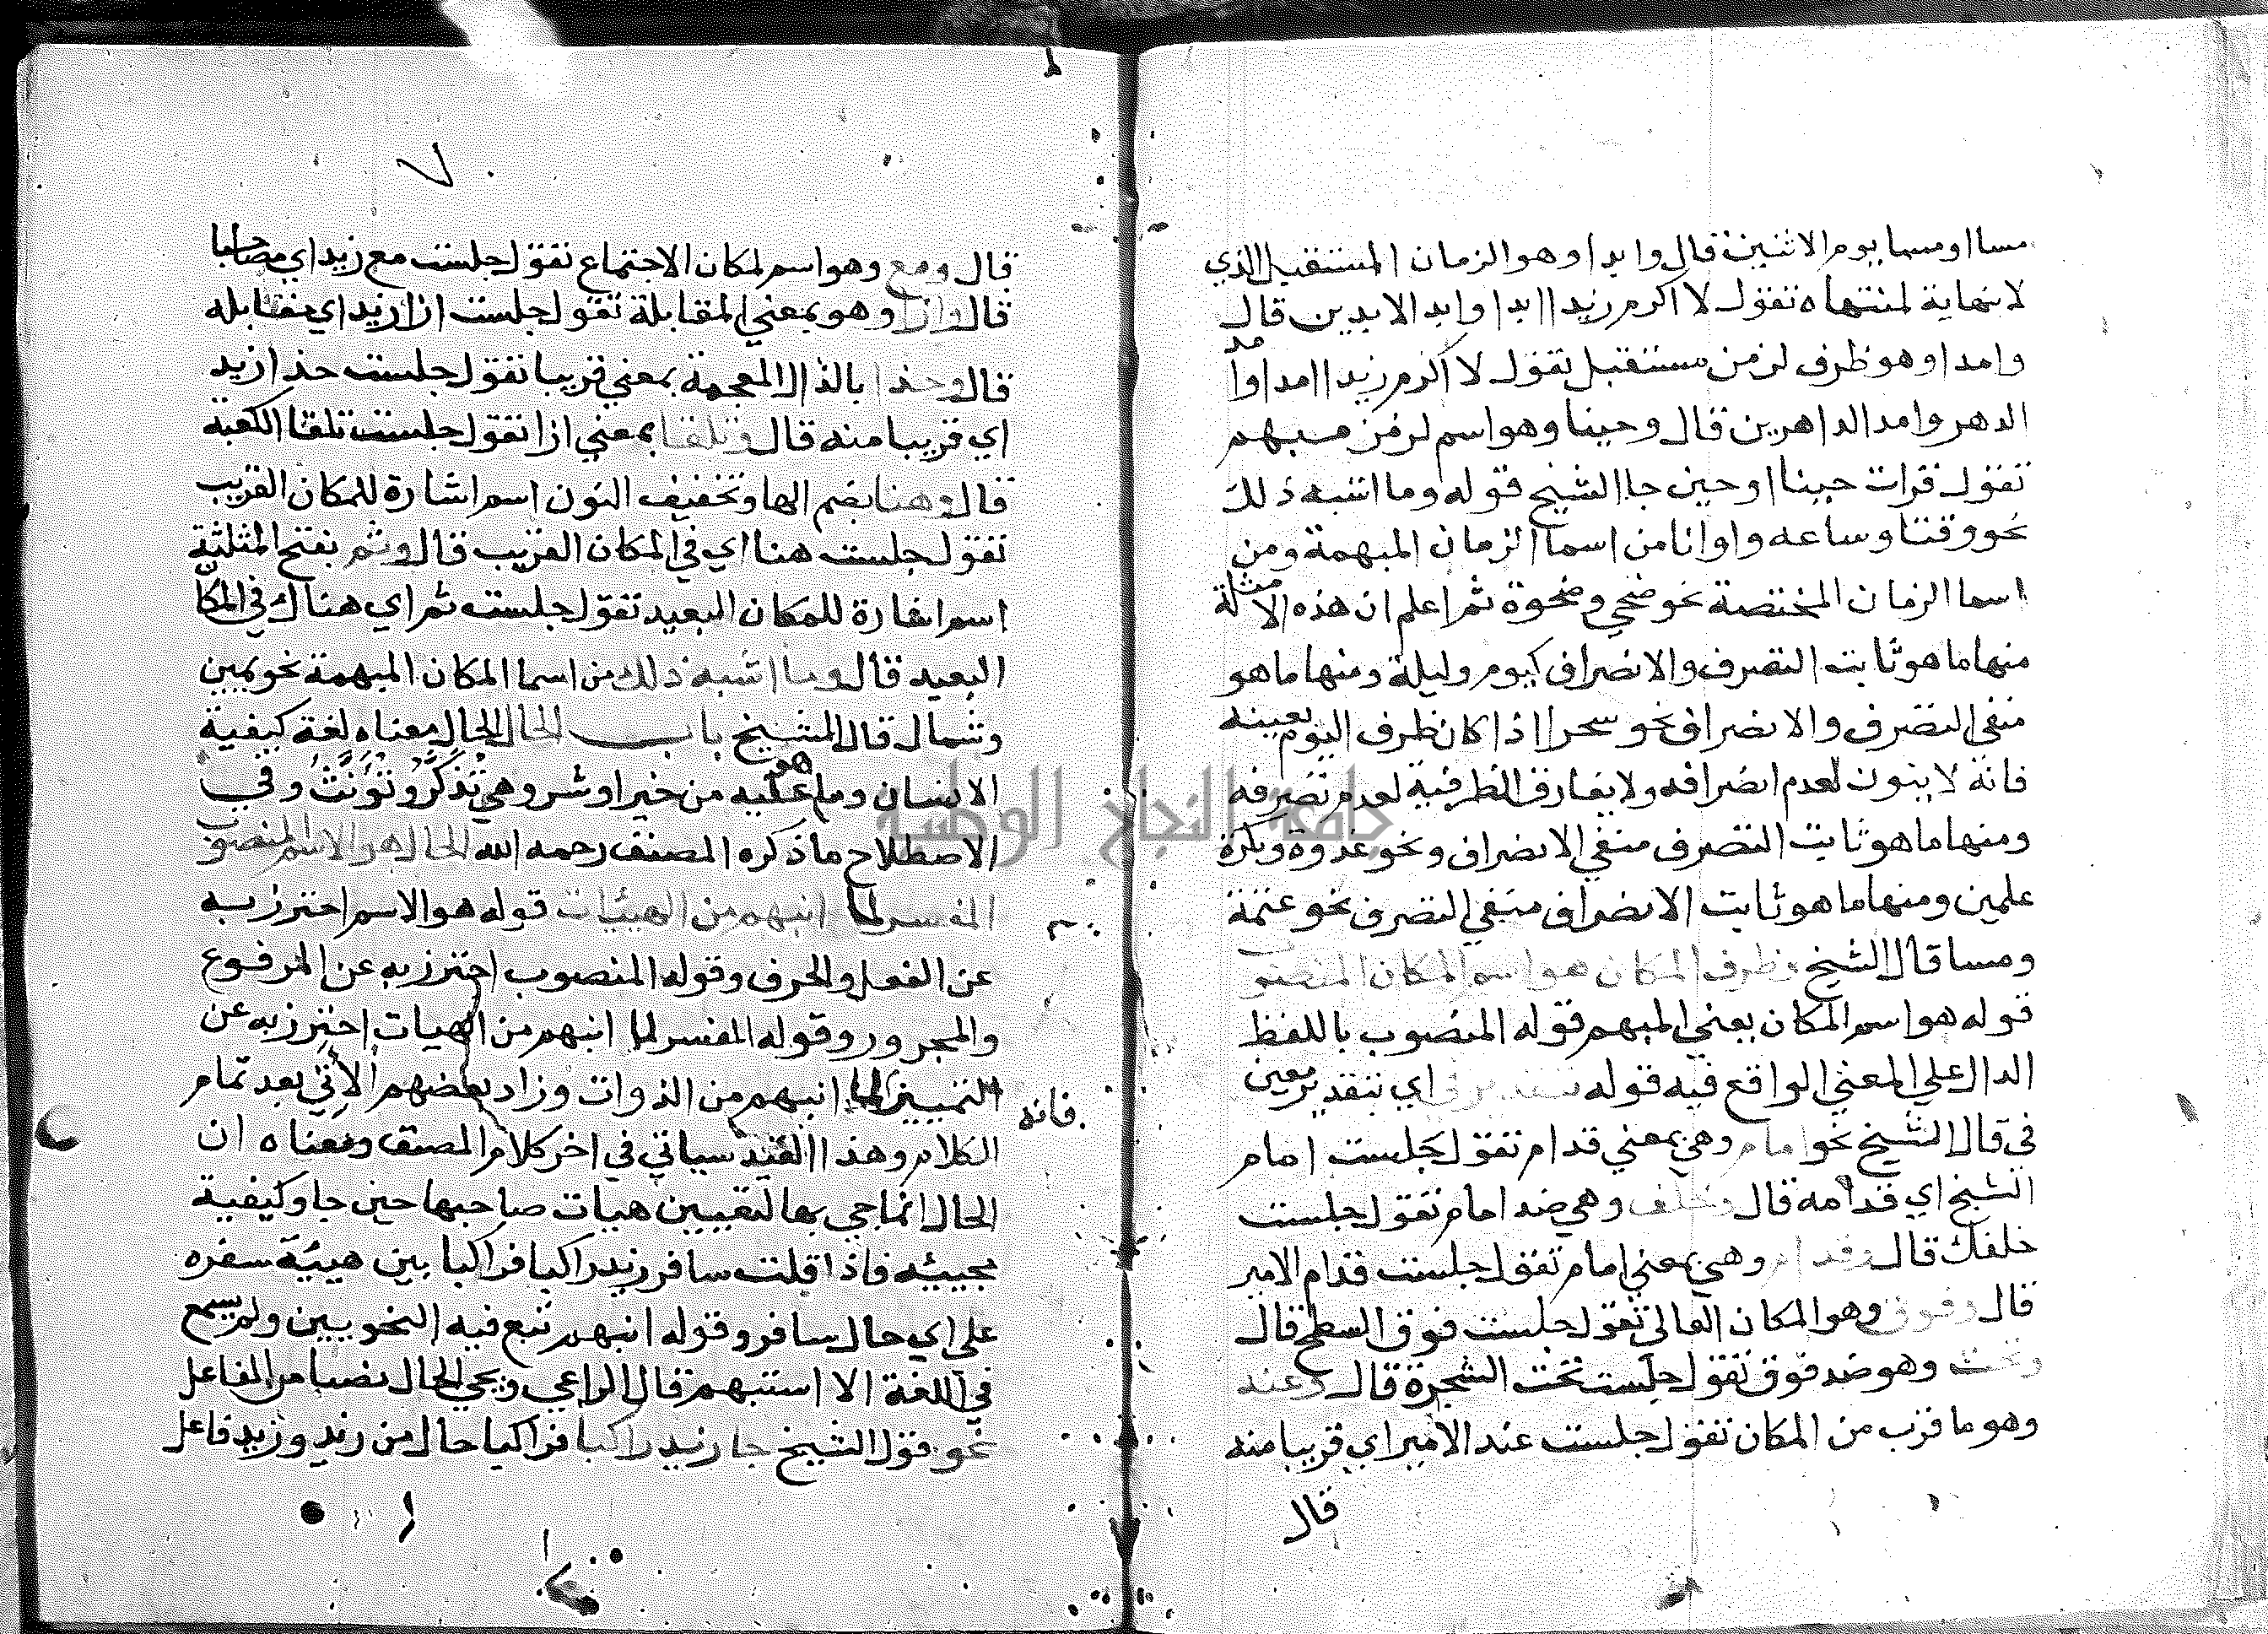 مسا او مسا يوم الاثنين قال وابدا وهو الزمان المستقبل الذي
لانهاية لمنتهاه تقول لا اكرم زيدا ابدا وابد الابدين قال
وامدا وهو ظرف لزمن مستقبل تقول لا اكرم زيدا امدا وامد
الدهر وامد الداهرين قال وحينا وهو اسم لزمن مبهم
تقول قرات حينا او حين جا الشيخ قوله وما اشبه ذلك
نحو وقتا وساعه واوانا من اسما الزمان المبهمة ومن
اسما الزمان المختصة نحو ضحي وضحوة ثم اعلم ان هذه الامثلة
منها ما هو ثابت التصرف والانصراف كيوم وليلة ومنها ما هو
منفي التصرف والانصراف نحو سحر اذا كان ظرف اليوم بعينه
فانه لا ينون لعدم انصرافه ولا يفارق الظرفية لعدم تصرفه
ومنها ما هو ثابت التصرف منفي الانصراف ونحو غدوة وبكرة
علمين ومنها ما هو ثابت الانصراف منفي التصرف نحو عتمة
ومسا قال الشيخ وظرف المكان هو اسم المكان المنصوب
قوله هو اسم المكان يعني المبهم قوله المنصوب باللفظ
الدال علي المعني الواقع فيه قوله بتقدير في اي بتقدير معين
في قال الشيخ نحو امام وهي بمعني قدام تقول جلست امام
الشيخ اي قدامه قال وخلف وهي ضد امام تقول جلست
خلفك قال وقدام وهي بمعني امام تقول جلست قدام الامير
قال وفوق وهو المكان العالي تقول جلست فوق السطح قال
وتحت وهو ضد فوق تقول جلست تحت الشجرة قال وعند
وهو ما قرب من المكان تقول جلست عند الامير اي قريبا منه
قال
٧
قال ومع وهو اسم لمكان الاجتماع تقول جلست مع زيد اي مصاحبا
قال وازا وهو بمعني المقابلة تقول جلست ازا زيد اي مقابله
قال وحذا بالذال المعجمة بمعني قريبا تقول جلست حذا زيد
اي قريبا منه قال وتلقا بمعني ازا تقول جلست تلقا الكعبة
قال وهنا بضم الها وتخفيف النون اسم اشارة للمكان القريب
تقول جلست هنا اي في المكان القريب قال وثم بفتح المثلثة
اسم اشارة للمكان البعيد تقول جلست ثم اي هناك في المكان
البعيد قال وما اشبه ذلك من اسما المكان المبهمة نحو يمين
وشمال قال الشيخ باب الحال الحال معناه لغة كيفية
الانسان وما هو عليه من خير او شر وهي تذكر وتونث وفي
الاصطلاح ما ذكره المصنف رحمه الله الحال هو الاسم المنصوب
المفسر لما انبهم من الهيئات قوله هو الاسم احترز به
عن الفعل والحرف وقوله المنصوب احترز به عن المرفوع
والمجرور وقوله المفسر لما انبهم من الهيات احترز به عن
التمييز فانه لما انبهم من الذوات وزاد بعضهم الاتي بعد تمام
الكلام وهذا القيد سياتي في اخر كلام المصنف ومعناه ان
الحال انما جي بها لتقييين هيات صاحبها حين جا وكيفية
مجيئه فاذا قلت سافر زيد راكبا فراكبا بين هيئة سفره
علي اي حال سافر وقوله انبهم تبع فيه النحويين ولم يسمع
في اللغة الا استبهم قال الراعي ويجي الحال نصبا من الفاعل
نحو قول الشيخ جا زيد راكبا فراكبا حال من زيد وزيد فاعل
جامعة النجاح الوطنية